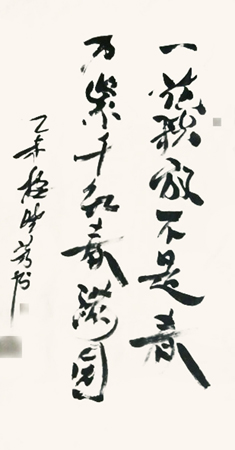 一花独放不是春
万紫千红春满园
乙未
书